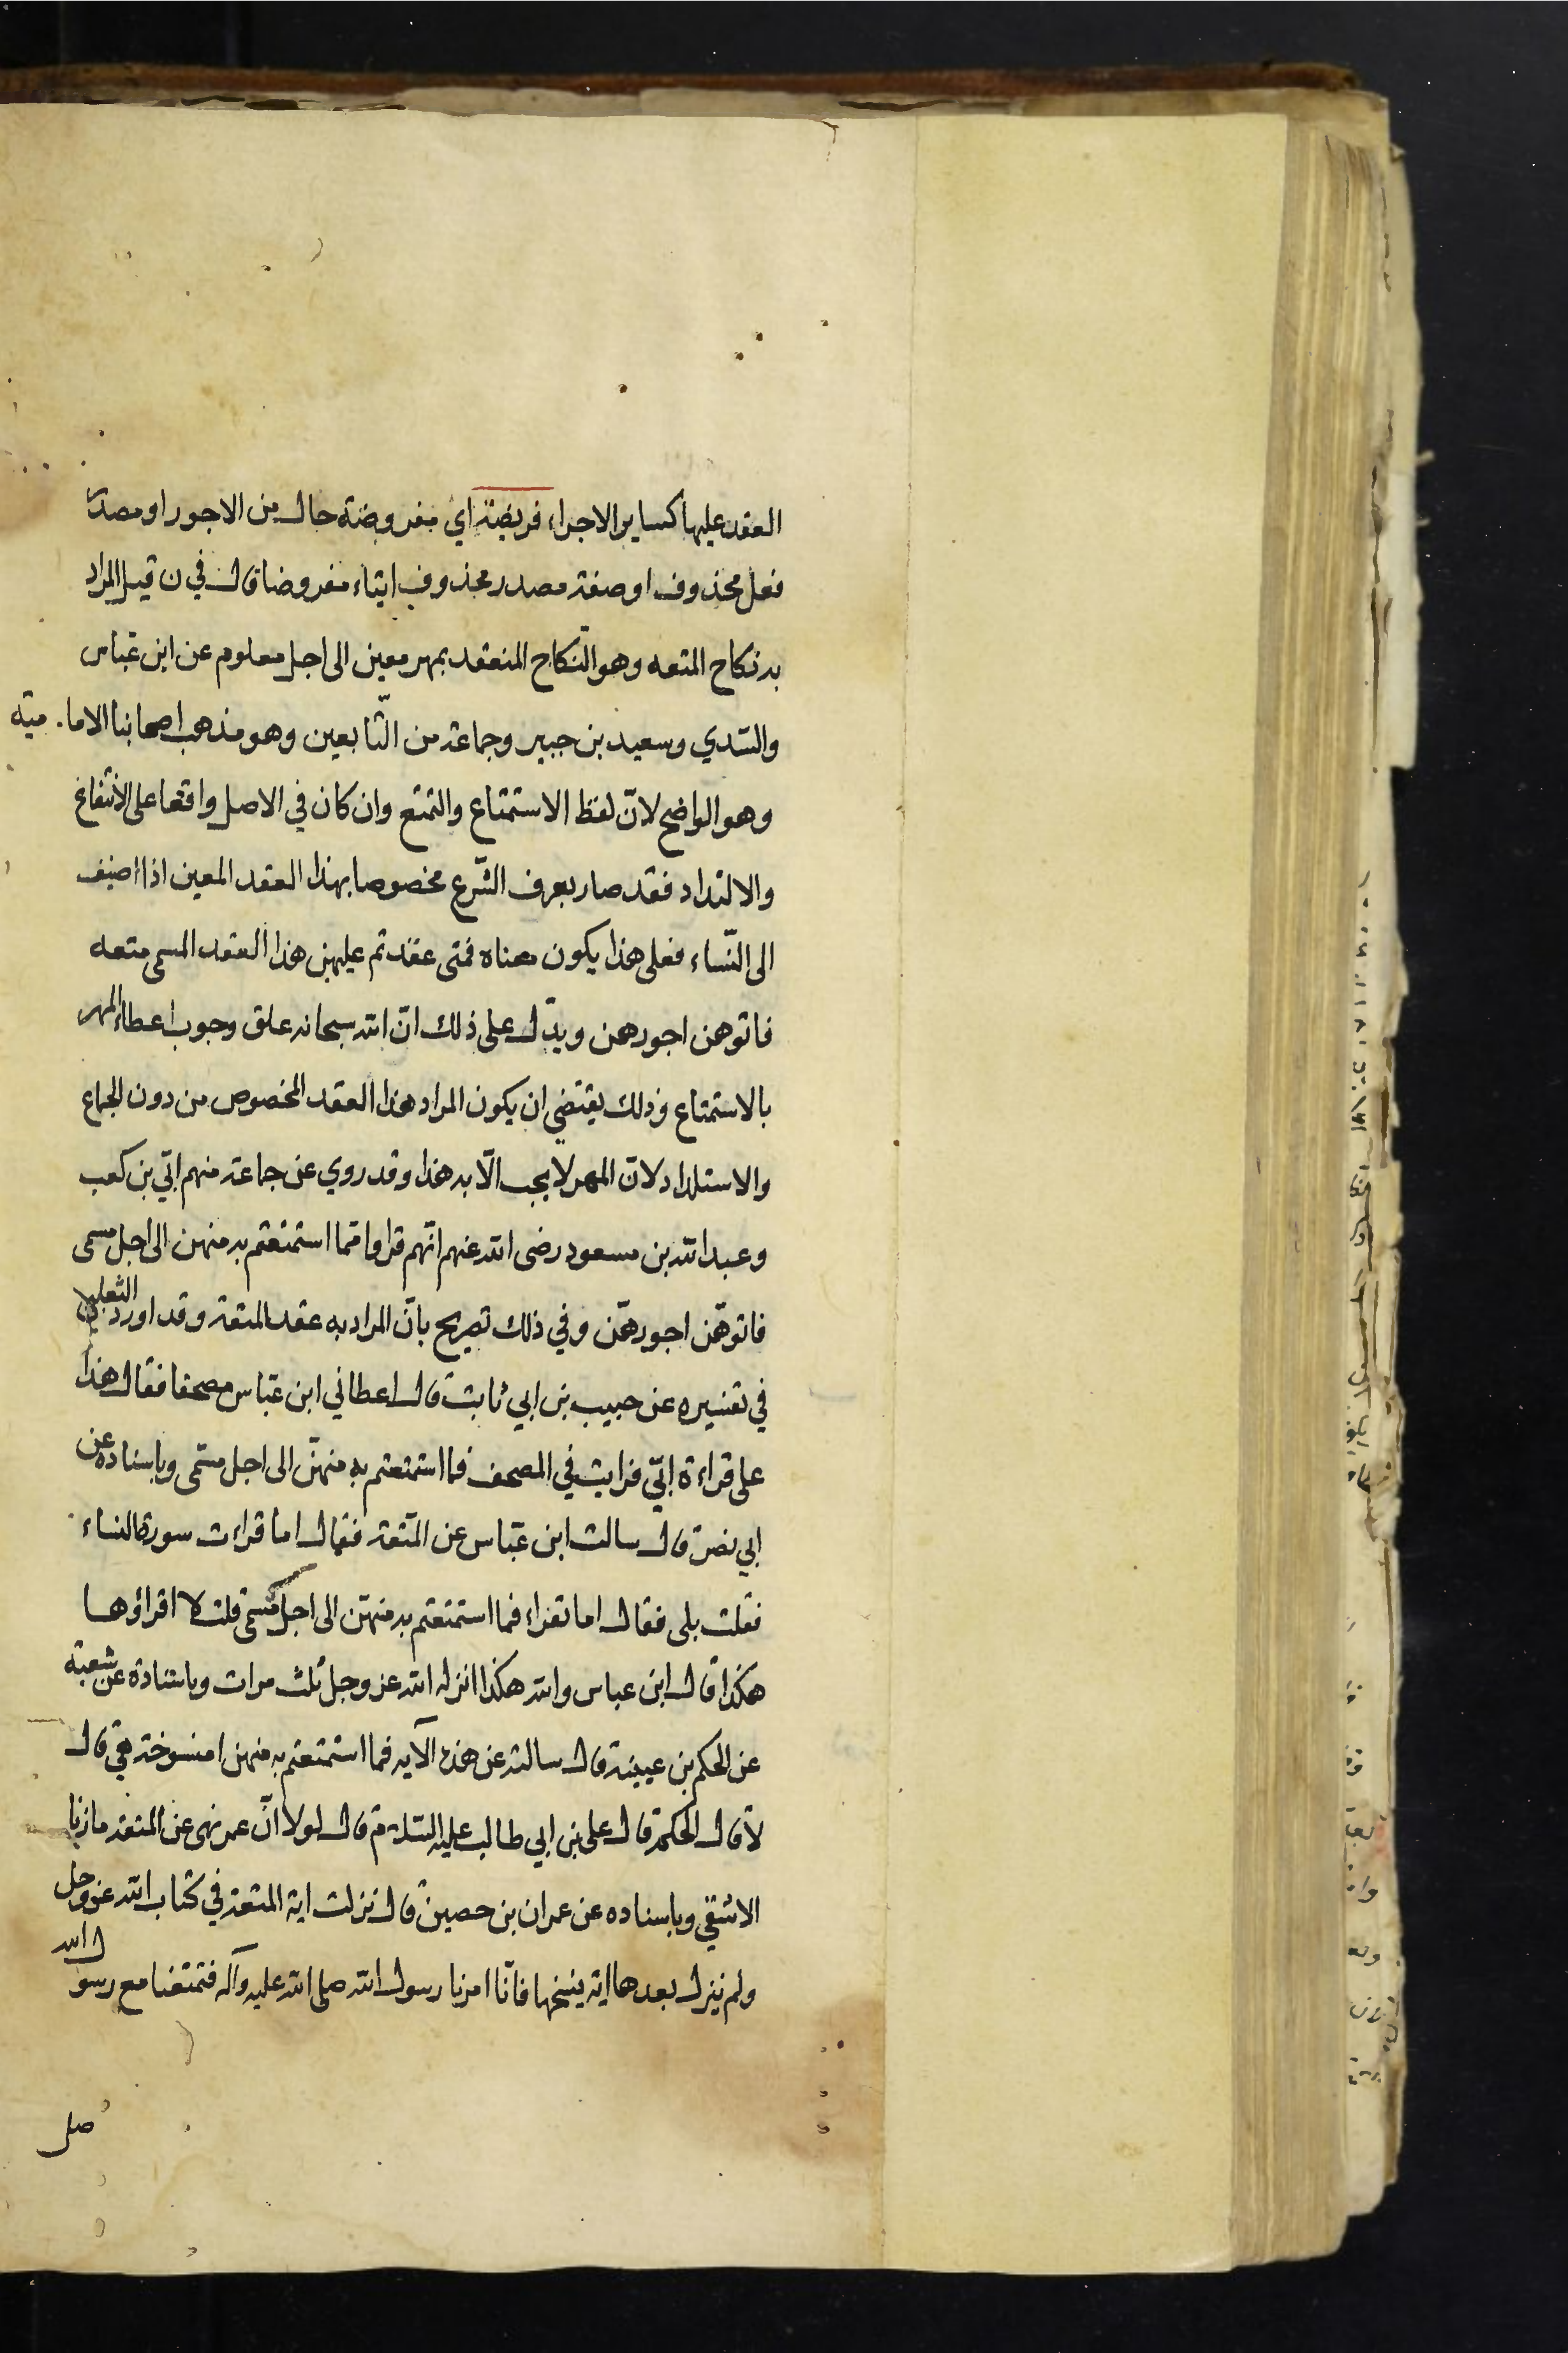 العقد عليها كساير الاجراء فريضة اي مفروضة حال من الاجور او مصدر
فعل محذوف او صفة مصدر محذوف ايتاء مفروضا قال في ن قيل المراد
به نكاح المتعه وهو النّكاح المنعقد بمهر معين الى اجل معلوم عن ابن عباس
والسّدي وسعيد بن جبير وجماعة من التّابعين وهو مذهب اصحابنا الامامية
وهو الواضح لانّ لفظ الاستمتاع والتمتع وان كان في الاصل واقعا على الانتفاع
والالتذاد فقد صار بعرف الشّرع مخصوصا بهذا العقد المعين اذا اضيف
الى النّساء فعلى هذا يكون معناه فمتى عقدتم عليهن هذا العقد المسمى متعه
فاتوهن اجورهن ويدّل على ذلك انّ الله سبحانه علق وجوب اعطاء المهر
بالاستمتاع وذلك يقتضي ان يكون المراد هذا العقد المخصوص من دون الجماع
والاستلداد لانّ المهر لا يجب الّا به هذا وقد روي عن جماعة منهم ابّي بن كعب
وعبد الله بن مسعود رضى الله عنهم انّهم قراوا فما استمتعتم به منهن الى اجل مسمى
فاتوهّن اجورهّن وفي ذلك تصريح بانّ المراد به عقد المتعة وقد اورد الثعلبي
في تفسيره عن حبيب بن ابي ثابت قال اعطاني ابن عبّاس مصحفا فقال هذا
على قراءة ابّي فرايت في المصحف فما استمتعتم به منهنّ الى اجل مسّمى وباسناده عن
ابي نضرة قال سالت ابن عبّاس عن المتعة فقال اما قراءت سورة النساء
فقلت بلى فقال اما تقراء فما استمتعتم به منهنّ الى اجل مسمّى قلت لا اقراؤها
هكذا قال ابن عباس والله هكذا انزله الله عز وجل ثلث مرات وباسناده عن شعبة
عن الحكم بن عيينة قال سالته عن هذه الآيه فما استمتعتم به منهن امنسوخة هي قال
لا قال الحكم قال على بن ابي طالب عليه السّلام قال لولا انّ عمر نهى عن المتعة ما زنا
الا شقي وباسناده عن عمران بن حصين قال نزلت اية المتعة في كتاب الله عز وجل
ولم ينزل بعدها اية ينسخها فانّا امرنا رسول الله صلى الله عليه وآله فتمتعنا مع رسول الله
صلى